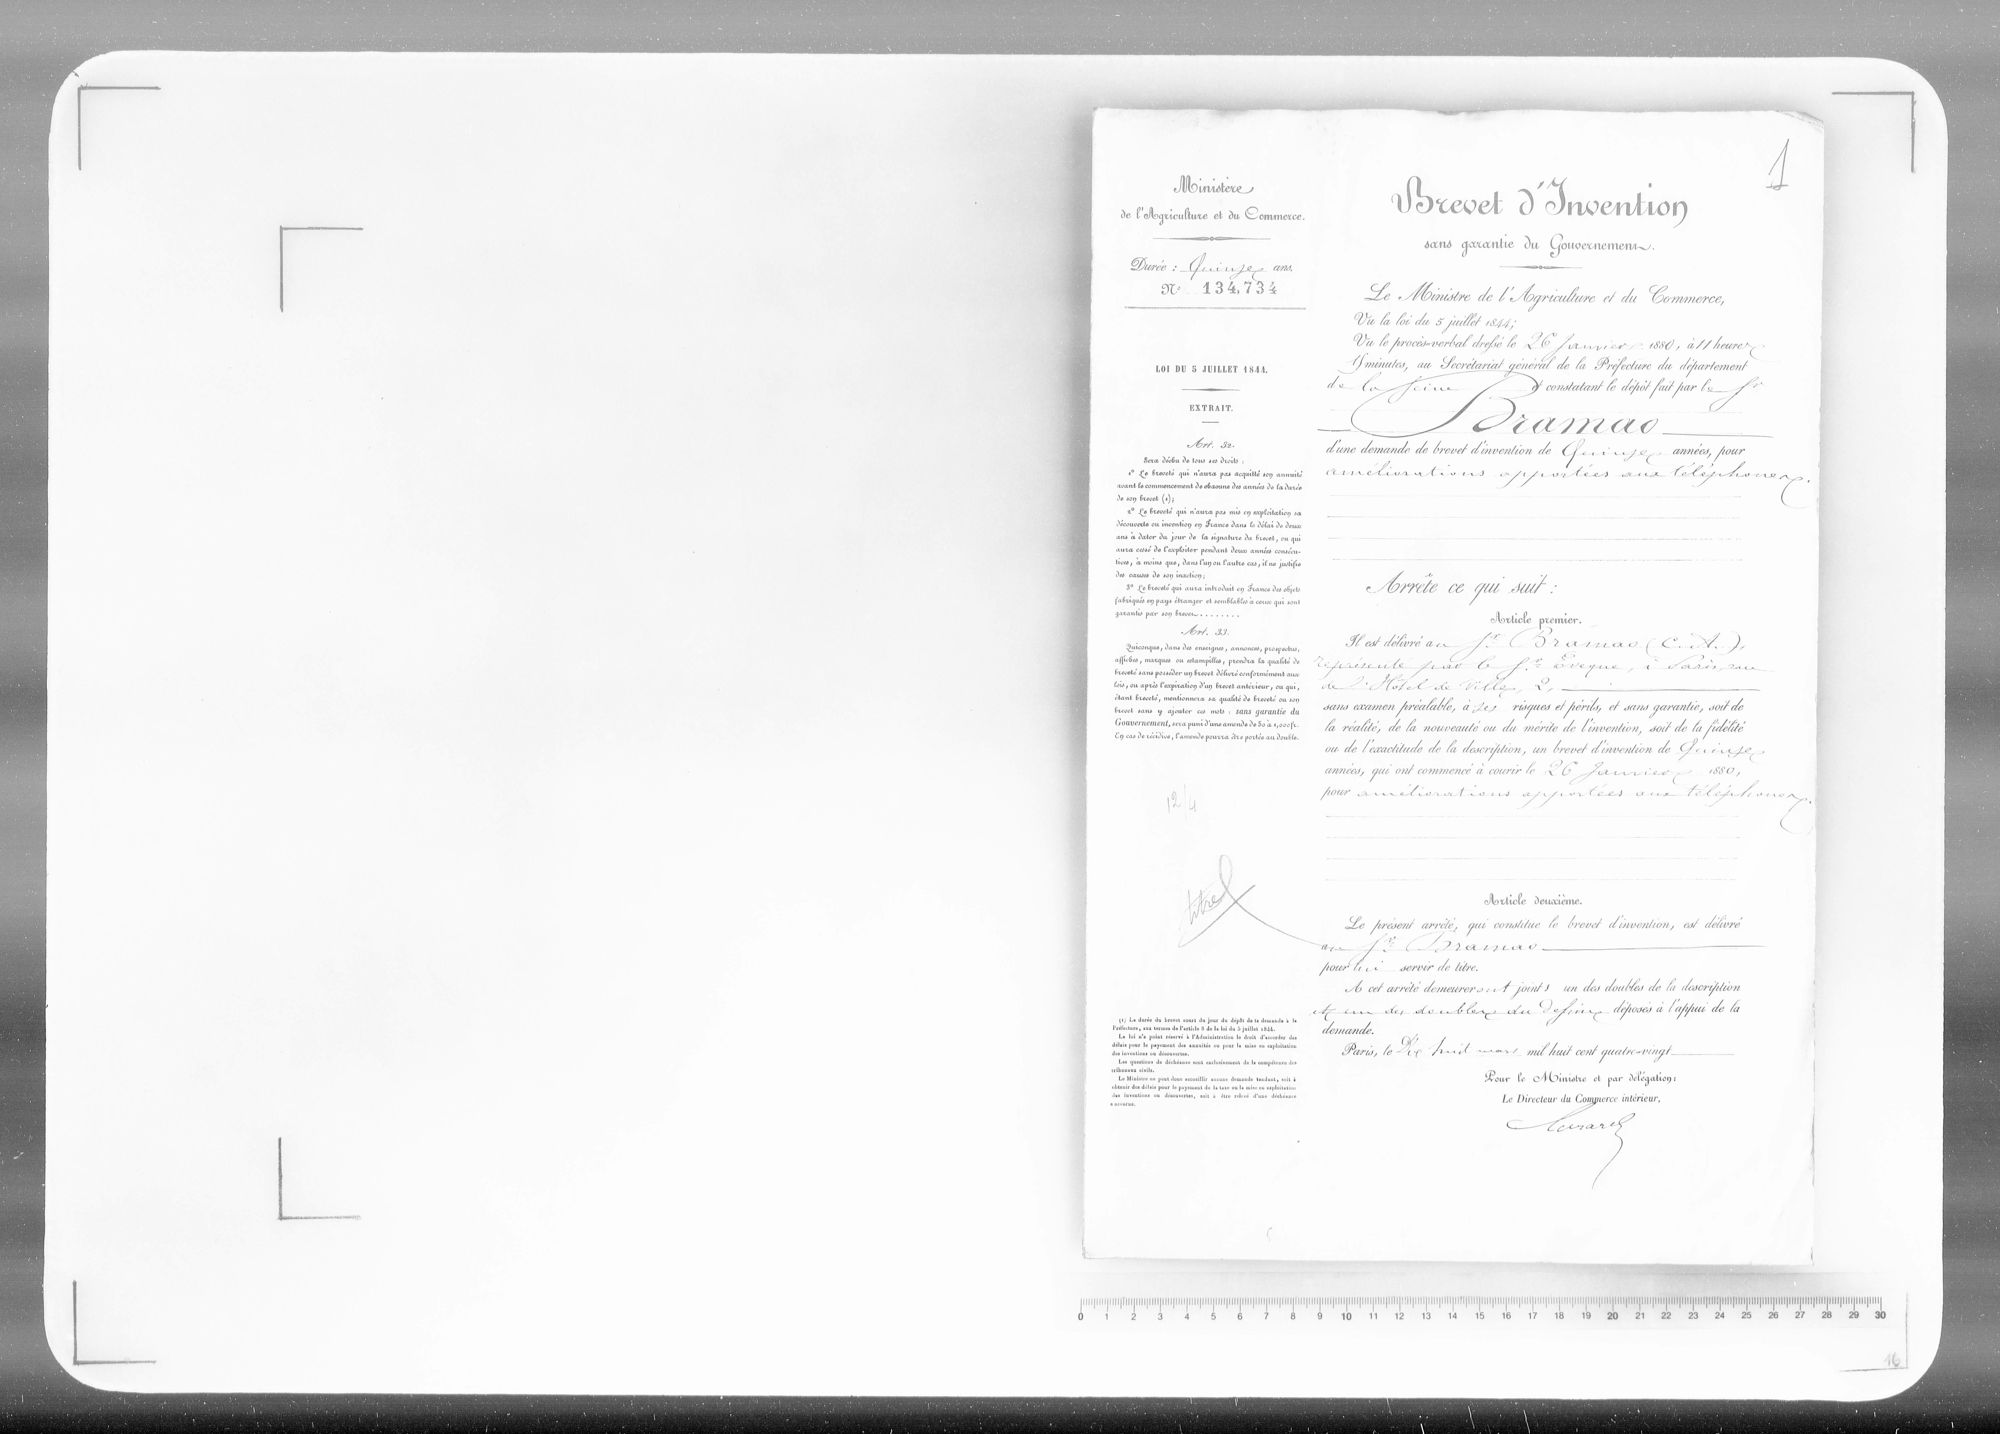 1
Ministère
de l'Agriculture et du Commerce.
Durée : Quinze ans.
N° 134,734
LOI DU 5 JUILLET 1844.
EXTRAIT.
Art. 32.
Sera déchu de tous ses droits :
1° Le breveté qui n'aura pas acquitté son annuité
avant le commencement de chacune des années de la durée
de son brevet (1);
2° Le breveté qui n'aura pas mis en exploitation sa
découverte ou invention en France dans le délai de deux
ans à dater du jour de la signature du brevet, ou qui
aura cessé de l'exploiter pendant deux années consécu-
tives, à moins que, dans l'un ou l'autre cas, il ne justifie
des causes de son inaction;
3° Le breveté qui aura introduit en France des objets
fabriqués en pays étranger et semblables à ceux qui sont
garantis par son brevet........
Art. 33.
Quiconque, dans des enseignes, annonces, prospectus,
affiches, marques ou estampilles, prendra la qualité de
breveté sans posséder un brevet délivré conformément aux
lois, ou après l'expiration d'un brevet antérieur, ou qui,
étant breveté, mentionnera sa qualité de breveté ou son
brevet sans y ajouter ces mots : sans garantie du
Gouvernement, sera puni d'une amende de 50 à 1,000 fr.
En cas de récidive, l'amende pourra être portée au double.
12/4
titre
(1) La durée du brevet court du jour du dépôt de la demande à la
Préfecture, aux termes de l'article 8 de la loi du 5 juillet 1844.
La loi n'a point réservé à l'Administration le droit d'accorder des
délais pour le payement des annuités ou pour la mise en exploitation
des inventions ou découvertes.
Les questions de déchéance sont exclusivement de la compétence des
tribunaux civils.
Le Ministre ne peut donc accueillir aucune demande tendant, soit à
obtenir des délais pour le payement de la taxe ou la mise en exploitation
des inventions ou découvertes, soit à être relevé d'une déchéance
encourue.
Brevet d'Invention
sans garantie du Gouvernement.
Le Ministre de l'Agriculture et du Commerce,
Vu la loi du 5 juillet 1844;
Vu le procès-verbal dressé le 26 Janvier 1880, à 11 heures
minutes, au Secrétariat général de la Préfecture du département
de la Seine et constatant le dépôt fait par le Sr
Bramao
d'une demande de brevet d'invention de Quinze années, pour
améliorations apportées aux téléphones.
Arrête ce qui suit :
Article premier.
Il est délivré au Sr Bramao (C. A.),
représenté par le Sr Evêque, à Paris, rue
de l'Hôtel de Ville, 2,
sans examen préalable, à ses risques et périls, et sans garantie, soit de
la réalité, de la nouveauté ou du mérite de l'invention, soit de la fidélité
ou de l'exactitude de la description, un brevet d'invention de Quinze
années, qui ont commencé à courir le 26 Janvier 1880,
pour améliorations apportées aux téléphones.
Article deuxième.
Le présent arrêté, qui constitue le brevet d'invention, est délivré
au Sr Bramao
pour lui servir de titre.
A cet arrêté demeureront joints un des doubles de la description
et un des doubles du dessin déposés à l'appui de la
demande.
Paris, le Dix huit mars mil huit cent quatre-vingt
Pour le Ministre et par délégation :
Le Directeur du Commerce intérieur,
0 1 2 3 4 5 6 7 8 9 10 11 12 13 14 15 16 17 18 19 20 21 22 23 24 25 26 27 28 29 30
16